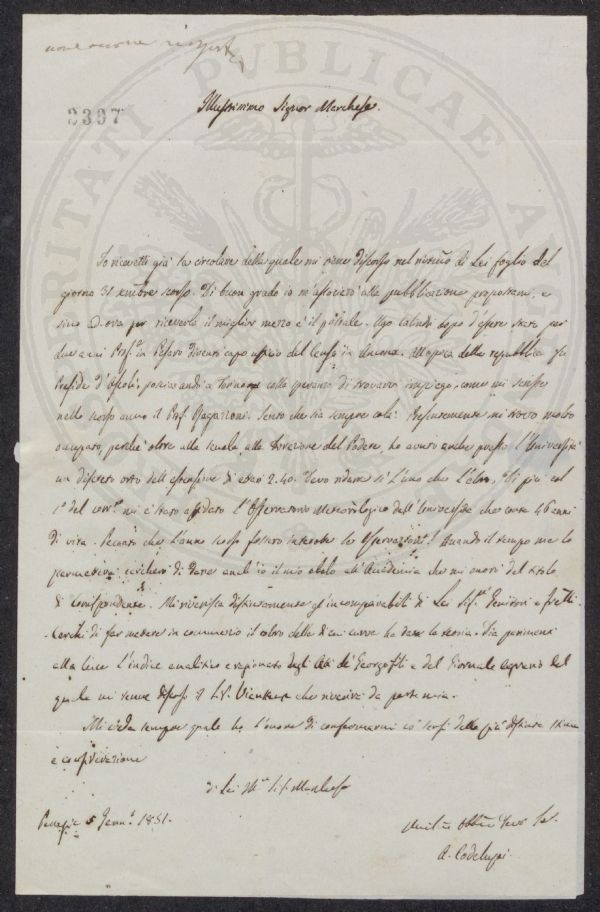 PROSPERITATI PUBLICAE AUGENDAE
non occorre risposta
2397
Illustrissimo Signor Marchese.
Io ricevetti già la circolare della quale mi tiene discorso nel di Lei foglio del
giorno 31 xmbre scorso. Di buon grado io m'assocerò alla pubblicazione propostami, e
sino ad ora per riceverla il miglior mezzo è il postale. Ugo Calindri dopo d'essere stato per
due anni Prof.e in Pesaro divenne capo ufficio del Censo in Ancona. All'epoca della repubblica fu
Preside d'Ascoli; poscia andò a Torino colla speranza di trovarvi impiego, come mi scrisse
nello scorso anno il Prof. Ragazzoni. Sento che sia sempre colà. Presentemente mi trovo molto
occupato, perchè oltre alla scuola, alla Direzione del Podere, ho avuto anche presso l'Università
un discreto orto dell'estensione di etari 2.40. Devo ridurre sì l'uno che l'altro. Di più col
1° del corr.e mi è stato affidato l'Osservatorio Meteorologico dell'Università che conta 46 anni
di vita. Peccato che l'anno scorso fossero interrotte le Osservazioni! Quando il tempo me lo
permetterà cercherò di dare anch'io il mio obolo all'Accademia che mi onorò del titolo
di Corrispondente. Mi riverisca distintamente gl'incomparabili di Lei Sig.ri Genitori e Fratelli.
Cerchi di far mettere in commercio il coltro della di cui curva ha dato la teoria. Dia parimenti
alla luce l'indice analitico e ragionato degli Atti de' Georgofili e del Giornale agrario del
quale mi tenne discorso il S.r Vieusseux che riverirà da parte mia.
Mi creda sempre quale ho l'onore di confermarmi co' sensi della più distinta stima
e considerazione
di Lei Sig. Marchese
Perugia 5 Genn.o 1851.
Umil.o Obbl.o Dev.o Se.
A. Codelupi.